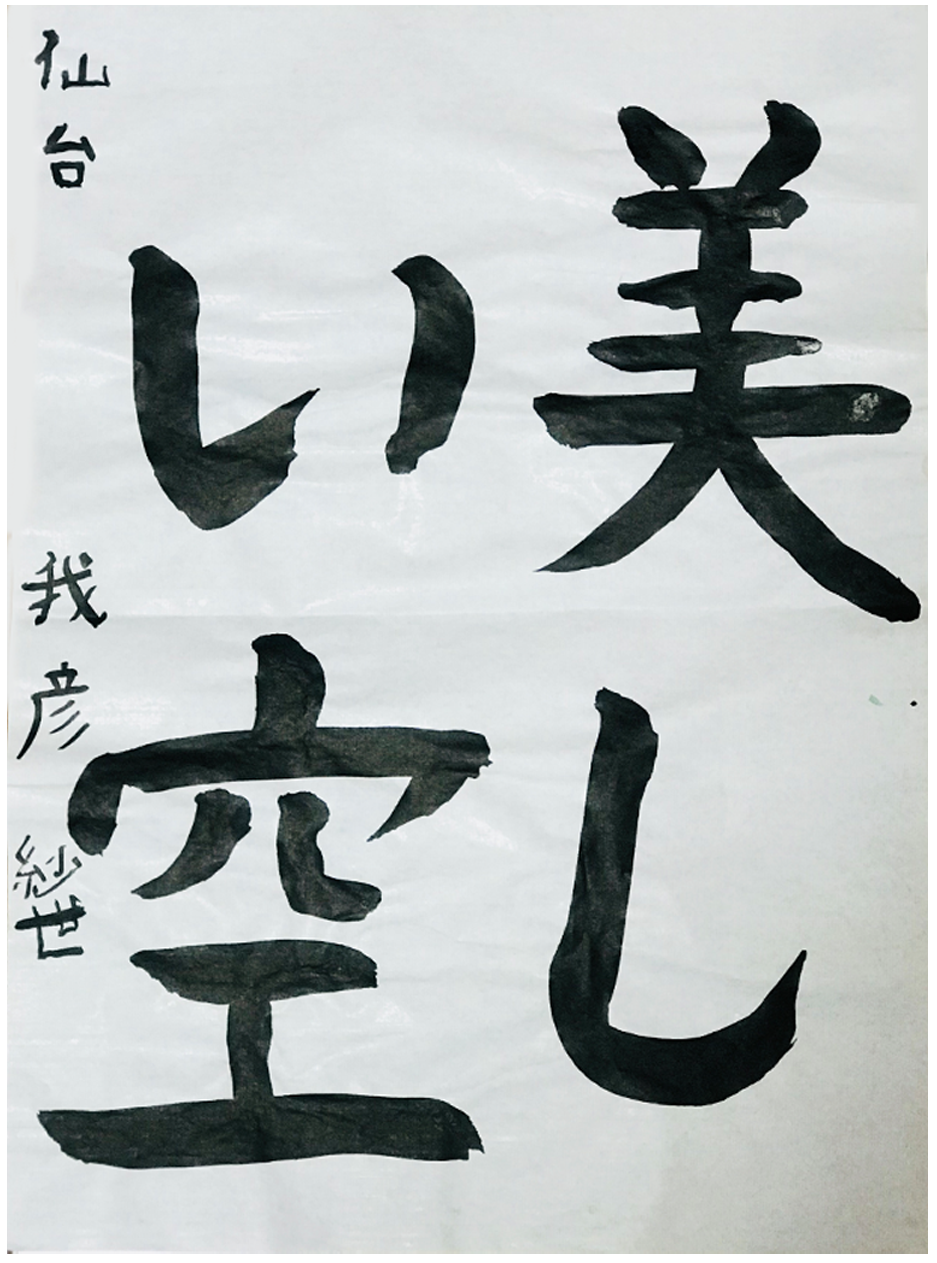 美し
い空
仙台 我彦紗世